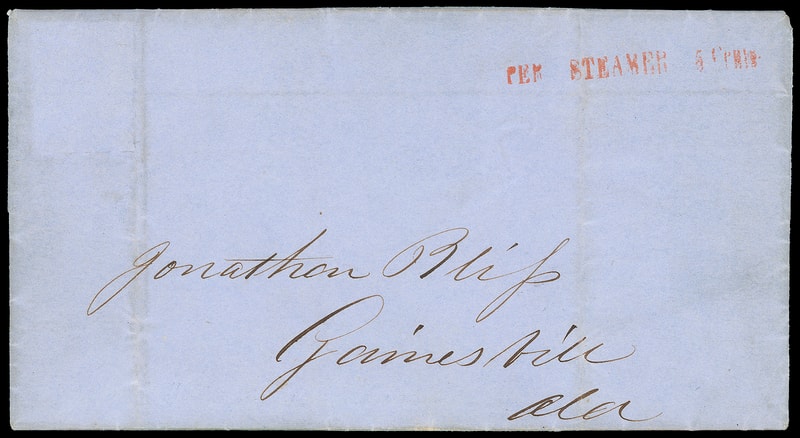 PER STEAMER 5 Cents.
Jonathan Bliss
Gainesvill
Ala